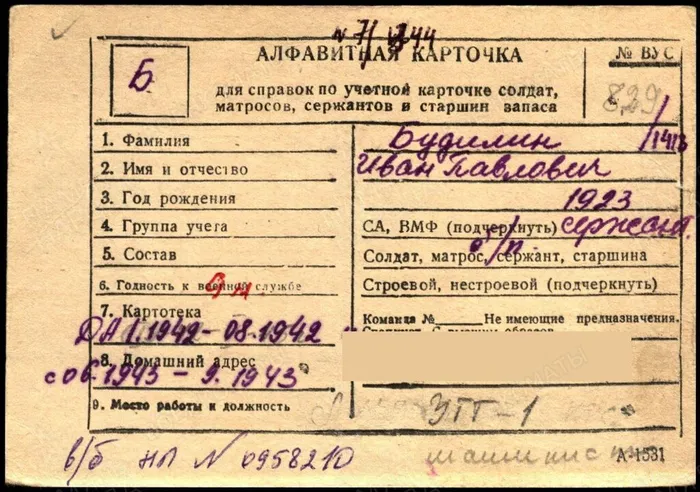 АЛФАВИТНАЯ КАРТОЧКА
Б
№ ВУС
для справок по учетной карточке солдат,
матросов, сержантов и старшин запаса
829
1. Фамилия
Будилин
2. Имя и отчество
Иван Павлович
3. Год рождения
1923
4. Группа учета
СА, ВМФ (подчеркнуть) сержант
5. Состав
Солдат, матрос, сержант, старшина
6. Годность к военной службе
Строевой, нестроевой (подчеркнуть)
7. Картотека
Команда № Не имеющие предназначения.
ДА 1.1942 - 08.1942
8. Домашний адрес
с 06.1943 - 9.1943
9. Место работы и должность
ЭТТ-1
в/б НЛ N 0958210
А-1531